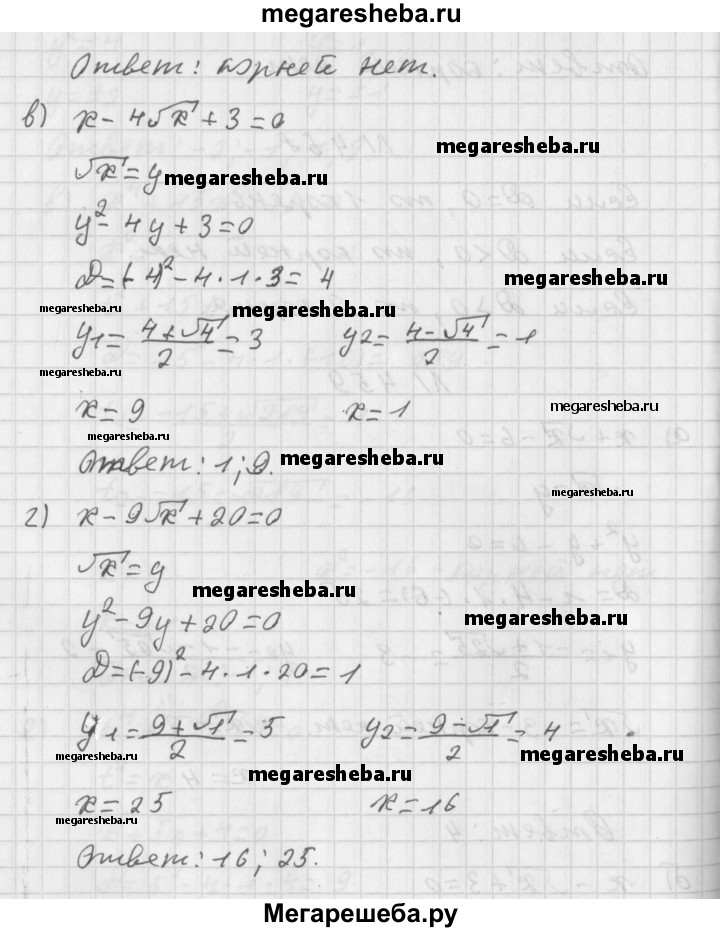 megaresheba.ru
Ответ: корней нет.
в) x - 4√x + 3 = 0
megaresheba.ru
√x = y megaresheba.ru
y² - 4y + 3 = 0
D = (-4)² - 4 · 1 · 3 = 4 megaresheba.ru
megaresheba.ru
y1 = (4 + √4)/2 = 3 y2 = (4 - √4)/2 = 1
megaresheba.ru megaresheba.ru
x = 9 x = 1 megaresheba.ru
megaresheba.ru
Ответ: 1; 9. megaresheba.ru megaresheba.ru
г) x - 9√x + 20 = 0
√x = y
megaresheba.ru
y² - 9y + 20 = 0 megaresheba.ru
D = (-9)² - 4 · 1 · 20 = 1
y1 = (9 + √1)/2 = 5 y2 = (9 - √1)/2 = 4
megaresheba.ru megaresheba.ru megaresheba.ru
x = 25 x = 16
megaresheba.ru
Ответ: 16; 25.
Мегарешеба.ру